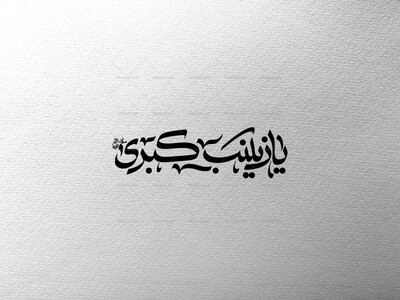 یا زینب کبری